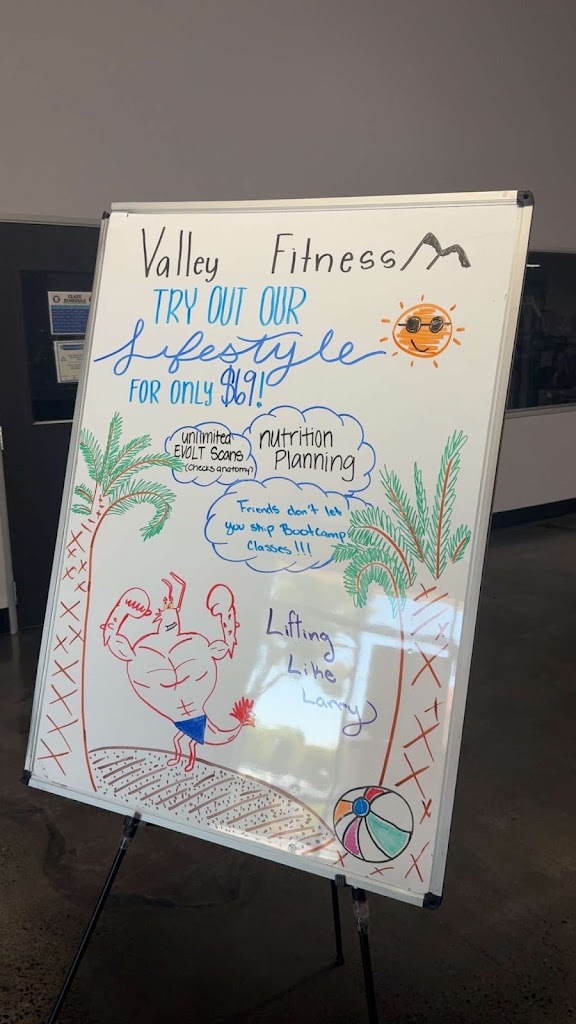 Valley Fitness
TRY OUT OUR
Lifestyle
FOR ONLY $69!
unlimited
EVOLT Scans
(checks anatomy)
nutrition
Planning
Friends don't let
you skip Bootcamp
Classes!!!
Lifting
Like
Larry
CLASS
SCHEDULE